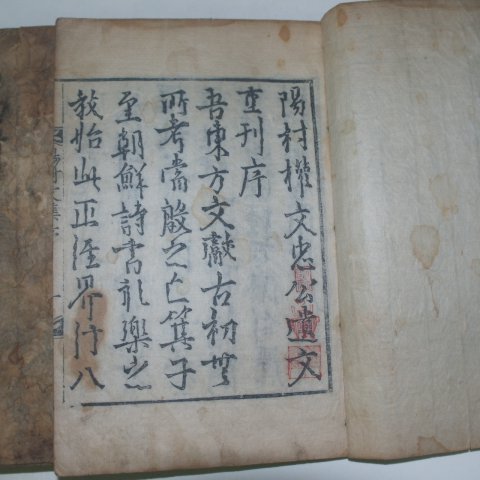 陽村權文忠公遺文
重刊序
吾東方文獻古初無
所考當殷之亡箕子
至朝鮮詩書礼樂之
教始此正經界行八